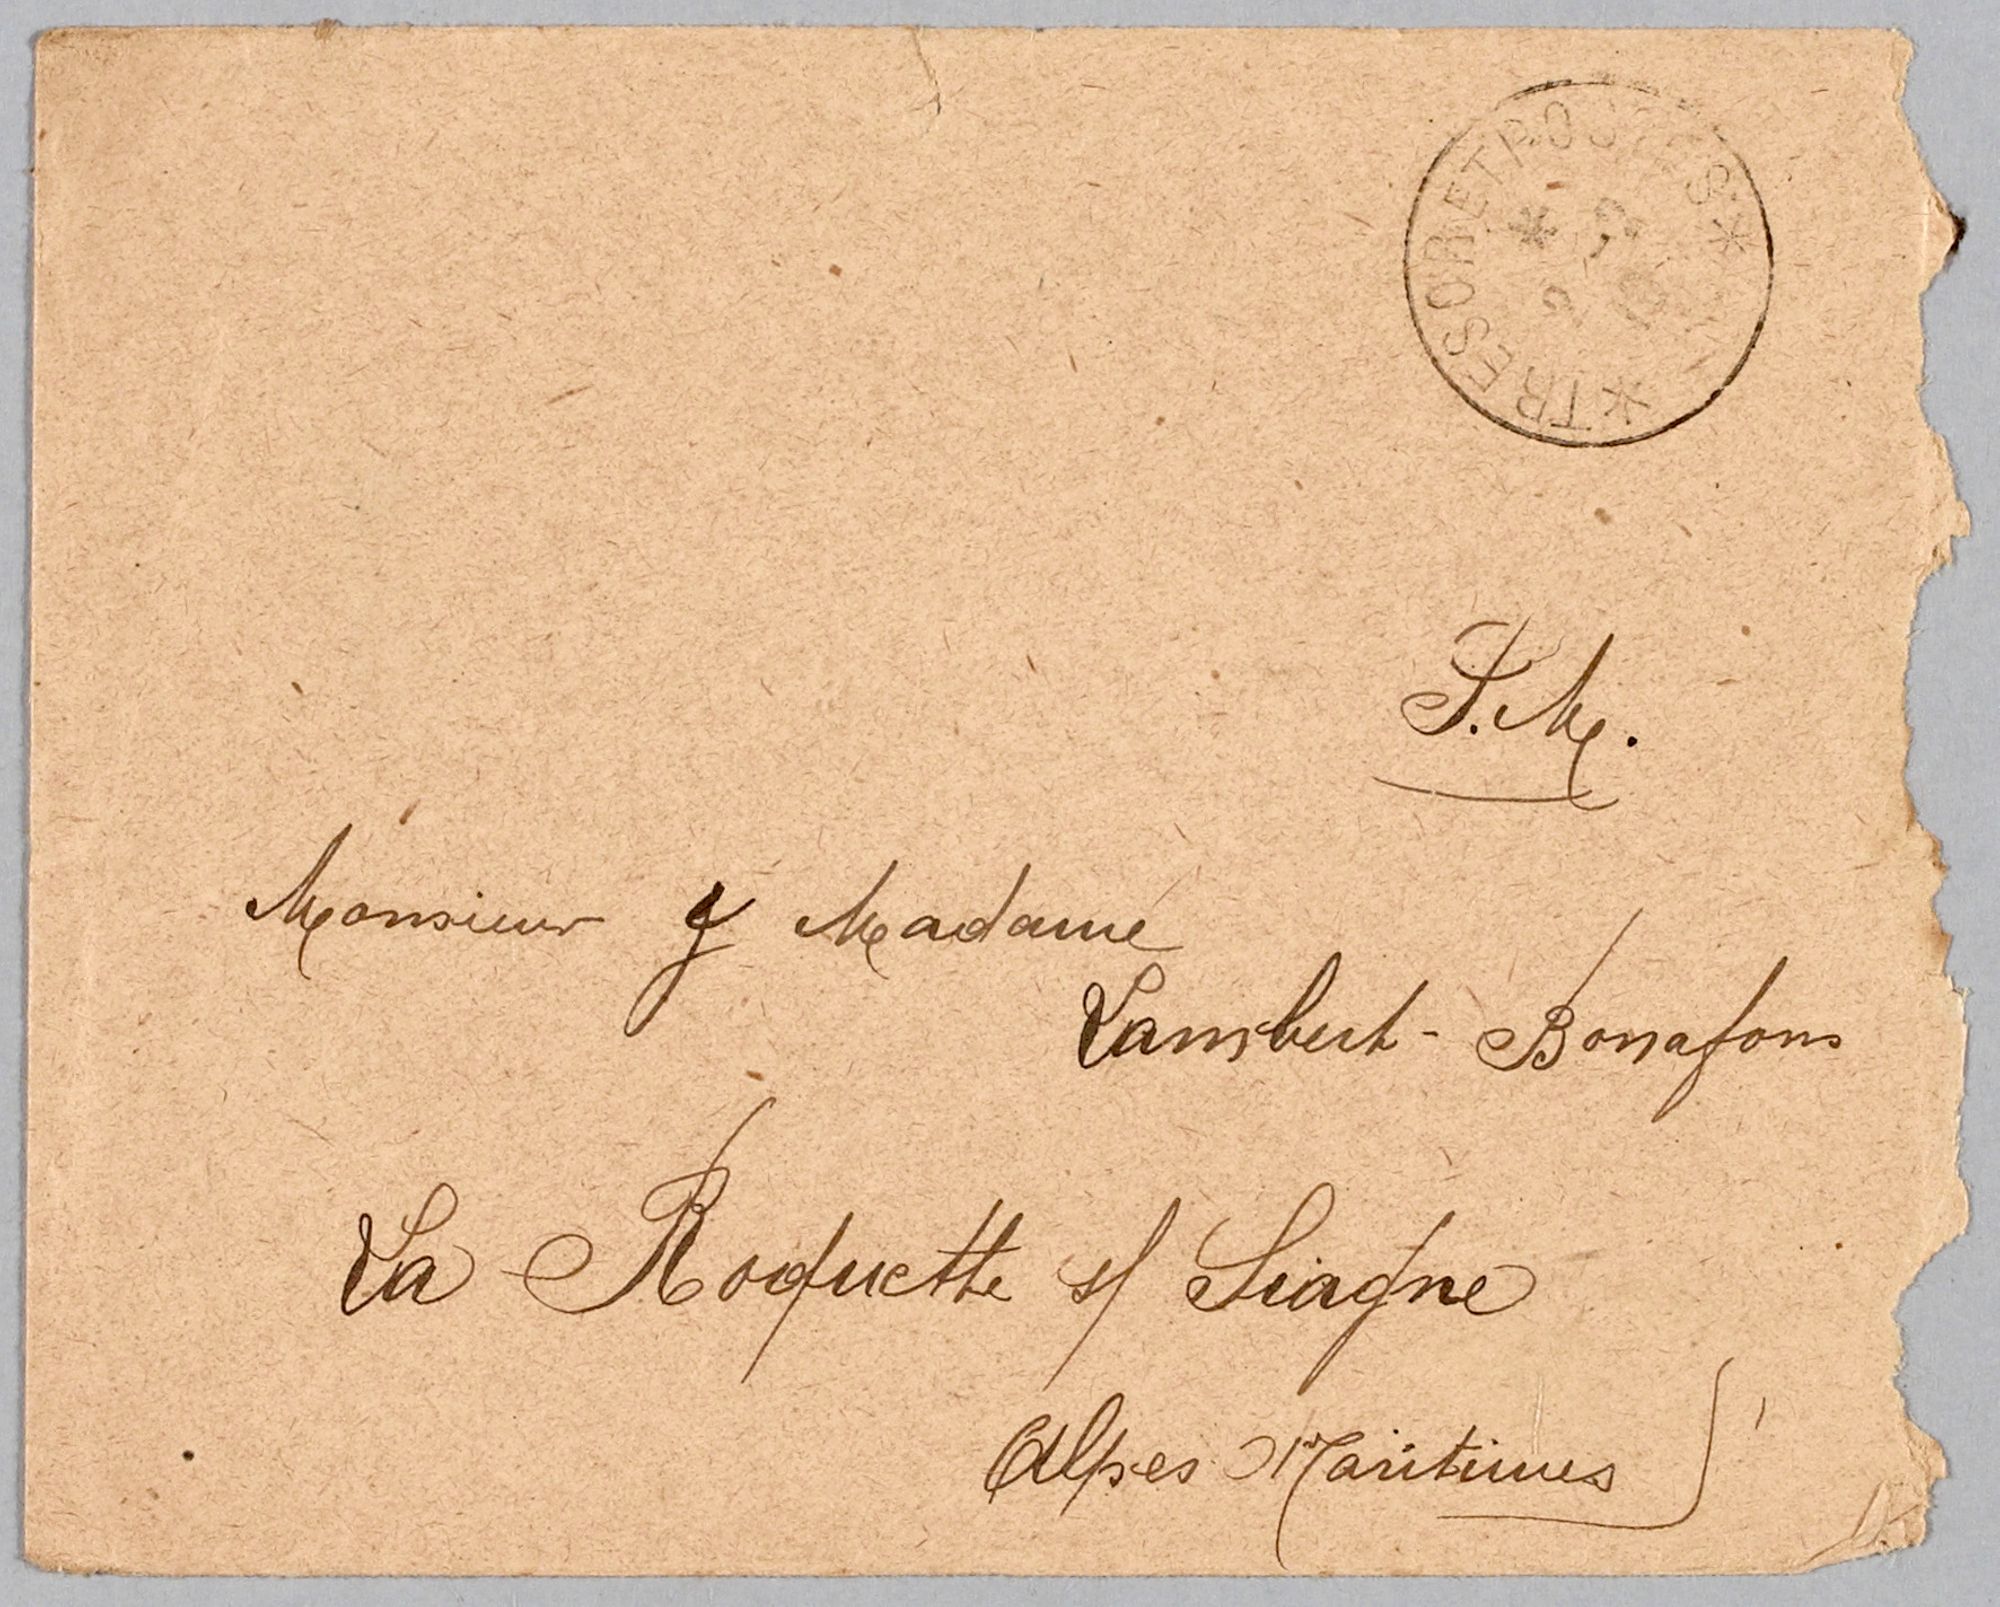 *TRESOR ET POSTES*
S.M.
Monsieur & Madame
Lambert-Bonafons
La Roquette s/ Siagne
Alpes Maritimes